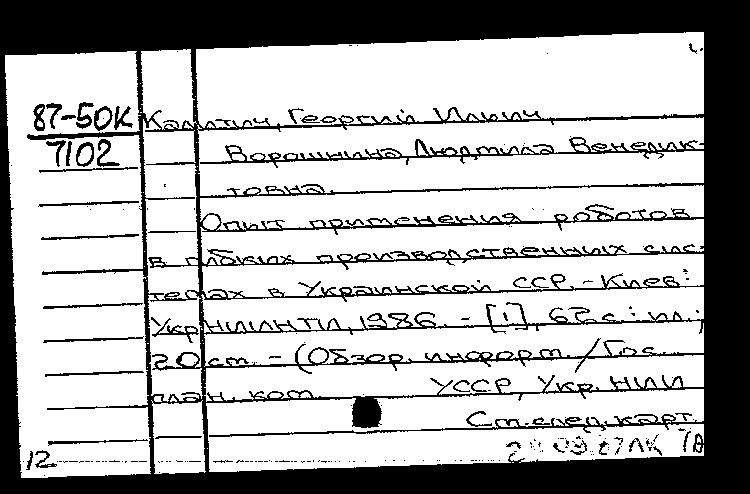 87-50К Калитич, Георгий Ильич,
7102 Ворошнина, Людмила Венедик-
товна.
Опыт применения роботов
в гибких производственных сис-
темах в Украинской ССР. - Киев:
УкрНИИНТИ, 1986. - [1], 62 с.: ил.;
20 см. - (Обзор. информ. / Гос.
план. ком. УССР, Укр. НИИ
См. след. карт.
12